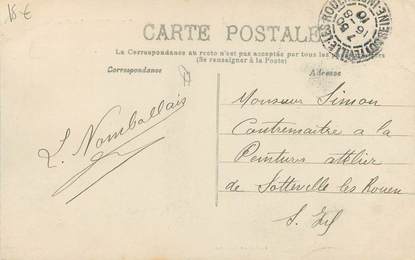 15 €
CARTE POSTALE
La Correspondance au recto n'est pas acceptée par tous les pays étrangers
(Se renseigner à la Poste)
Correspondance
Adresse
Monsieur Simon
Contremaitre a la
Peinture atelier
de Sotteville les Rouen
S. Inf
L. Nomballais